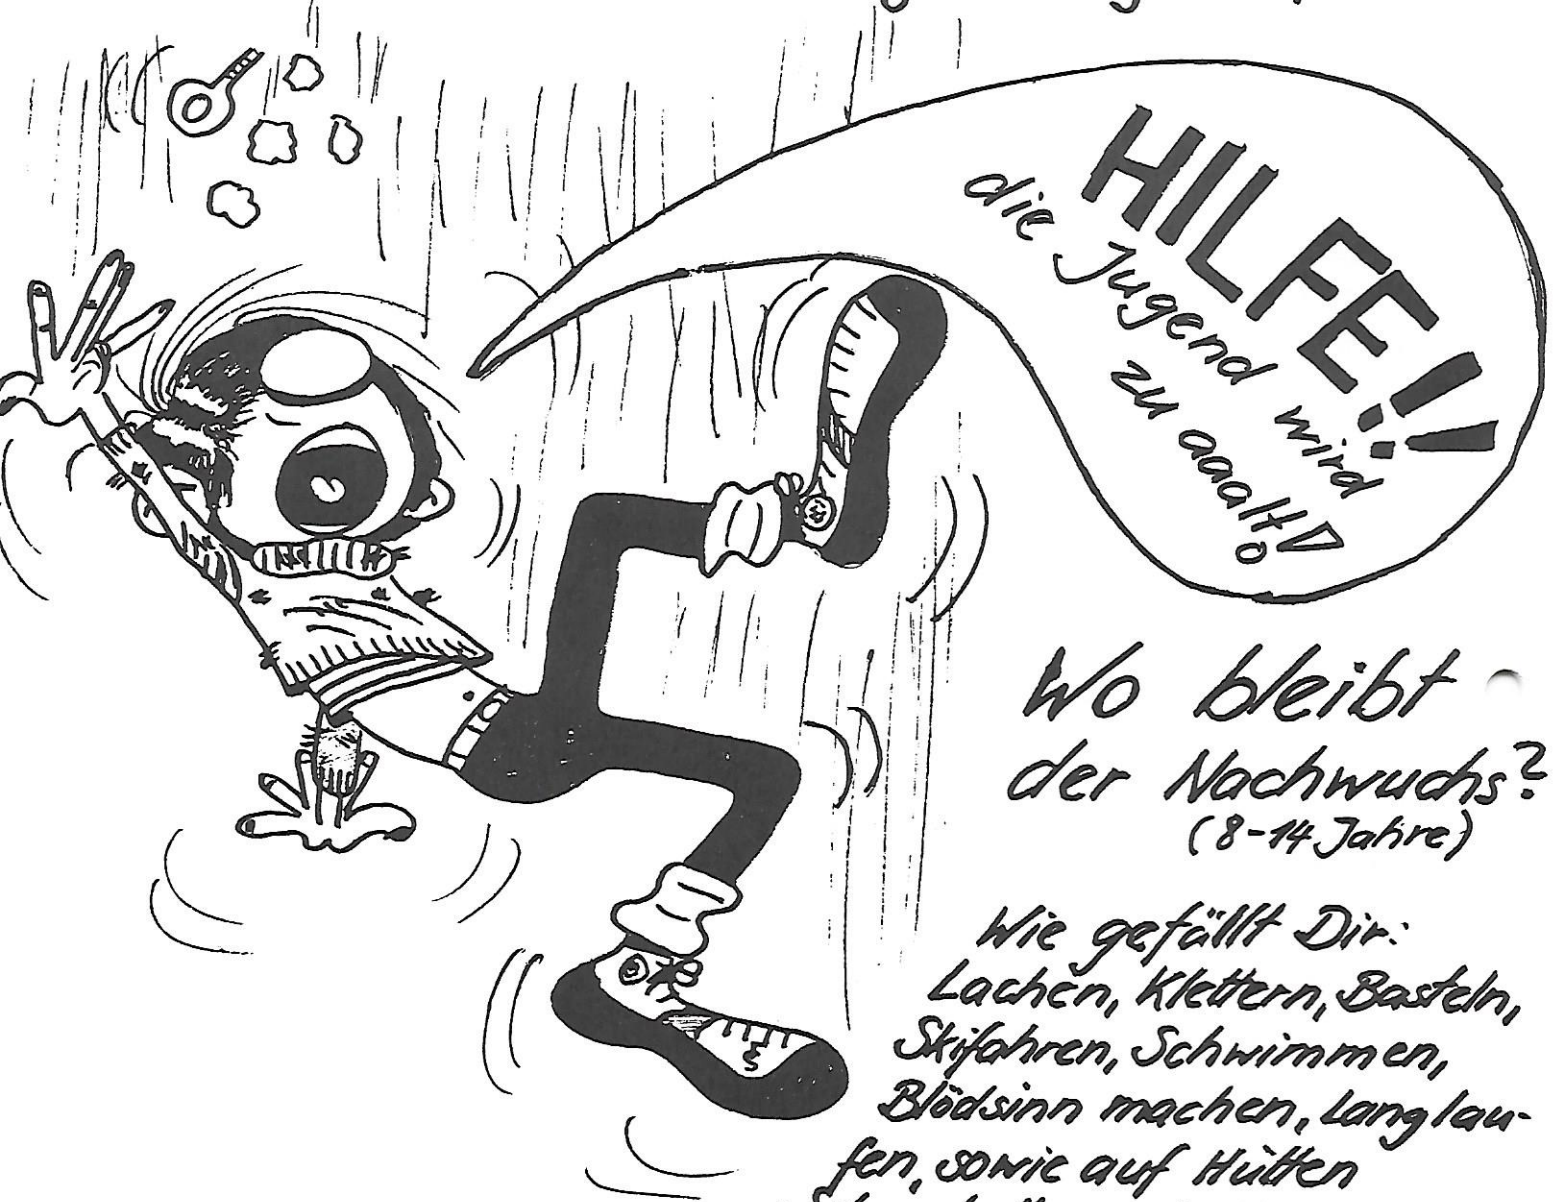 HILFE!!
die Jugend wird
zu aaalt!
Wo bleibt
der Nachwuchs?
(8-14 Jahre)
Wie gefällt Dir:
Lachen, Klettern, Basteln,
Skifahren, Schwimmen,
Blödsinn machen, Langlau-
fen, sowie auf Hütten